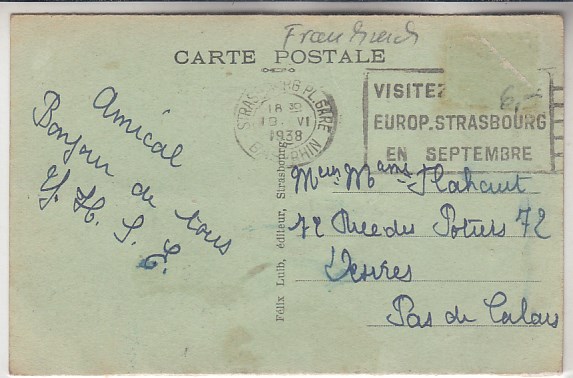 Frankreich
CARTE POSTALE
STRASBOURG PL. GARE
18 30
19 VI
1938
BAS-RHIN
VISITEZ
6,-
EUROP. STRASBOURG
EN SEPTEMBRE
Amical
Bonjour de tous
Y. H. S. E.
Félix Luib, éditeur, Strasbourg
Meur Mame Flahaut
72 Rue des Potiers 72
Desvres
Pas de Calais